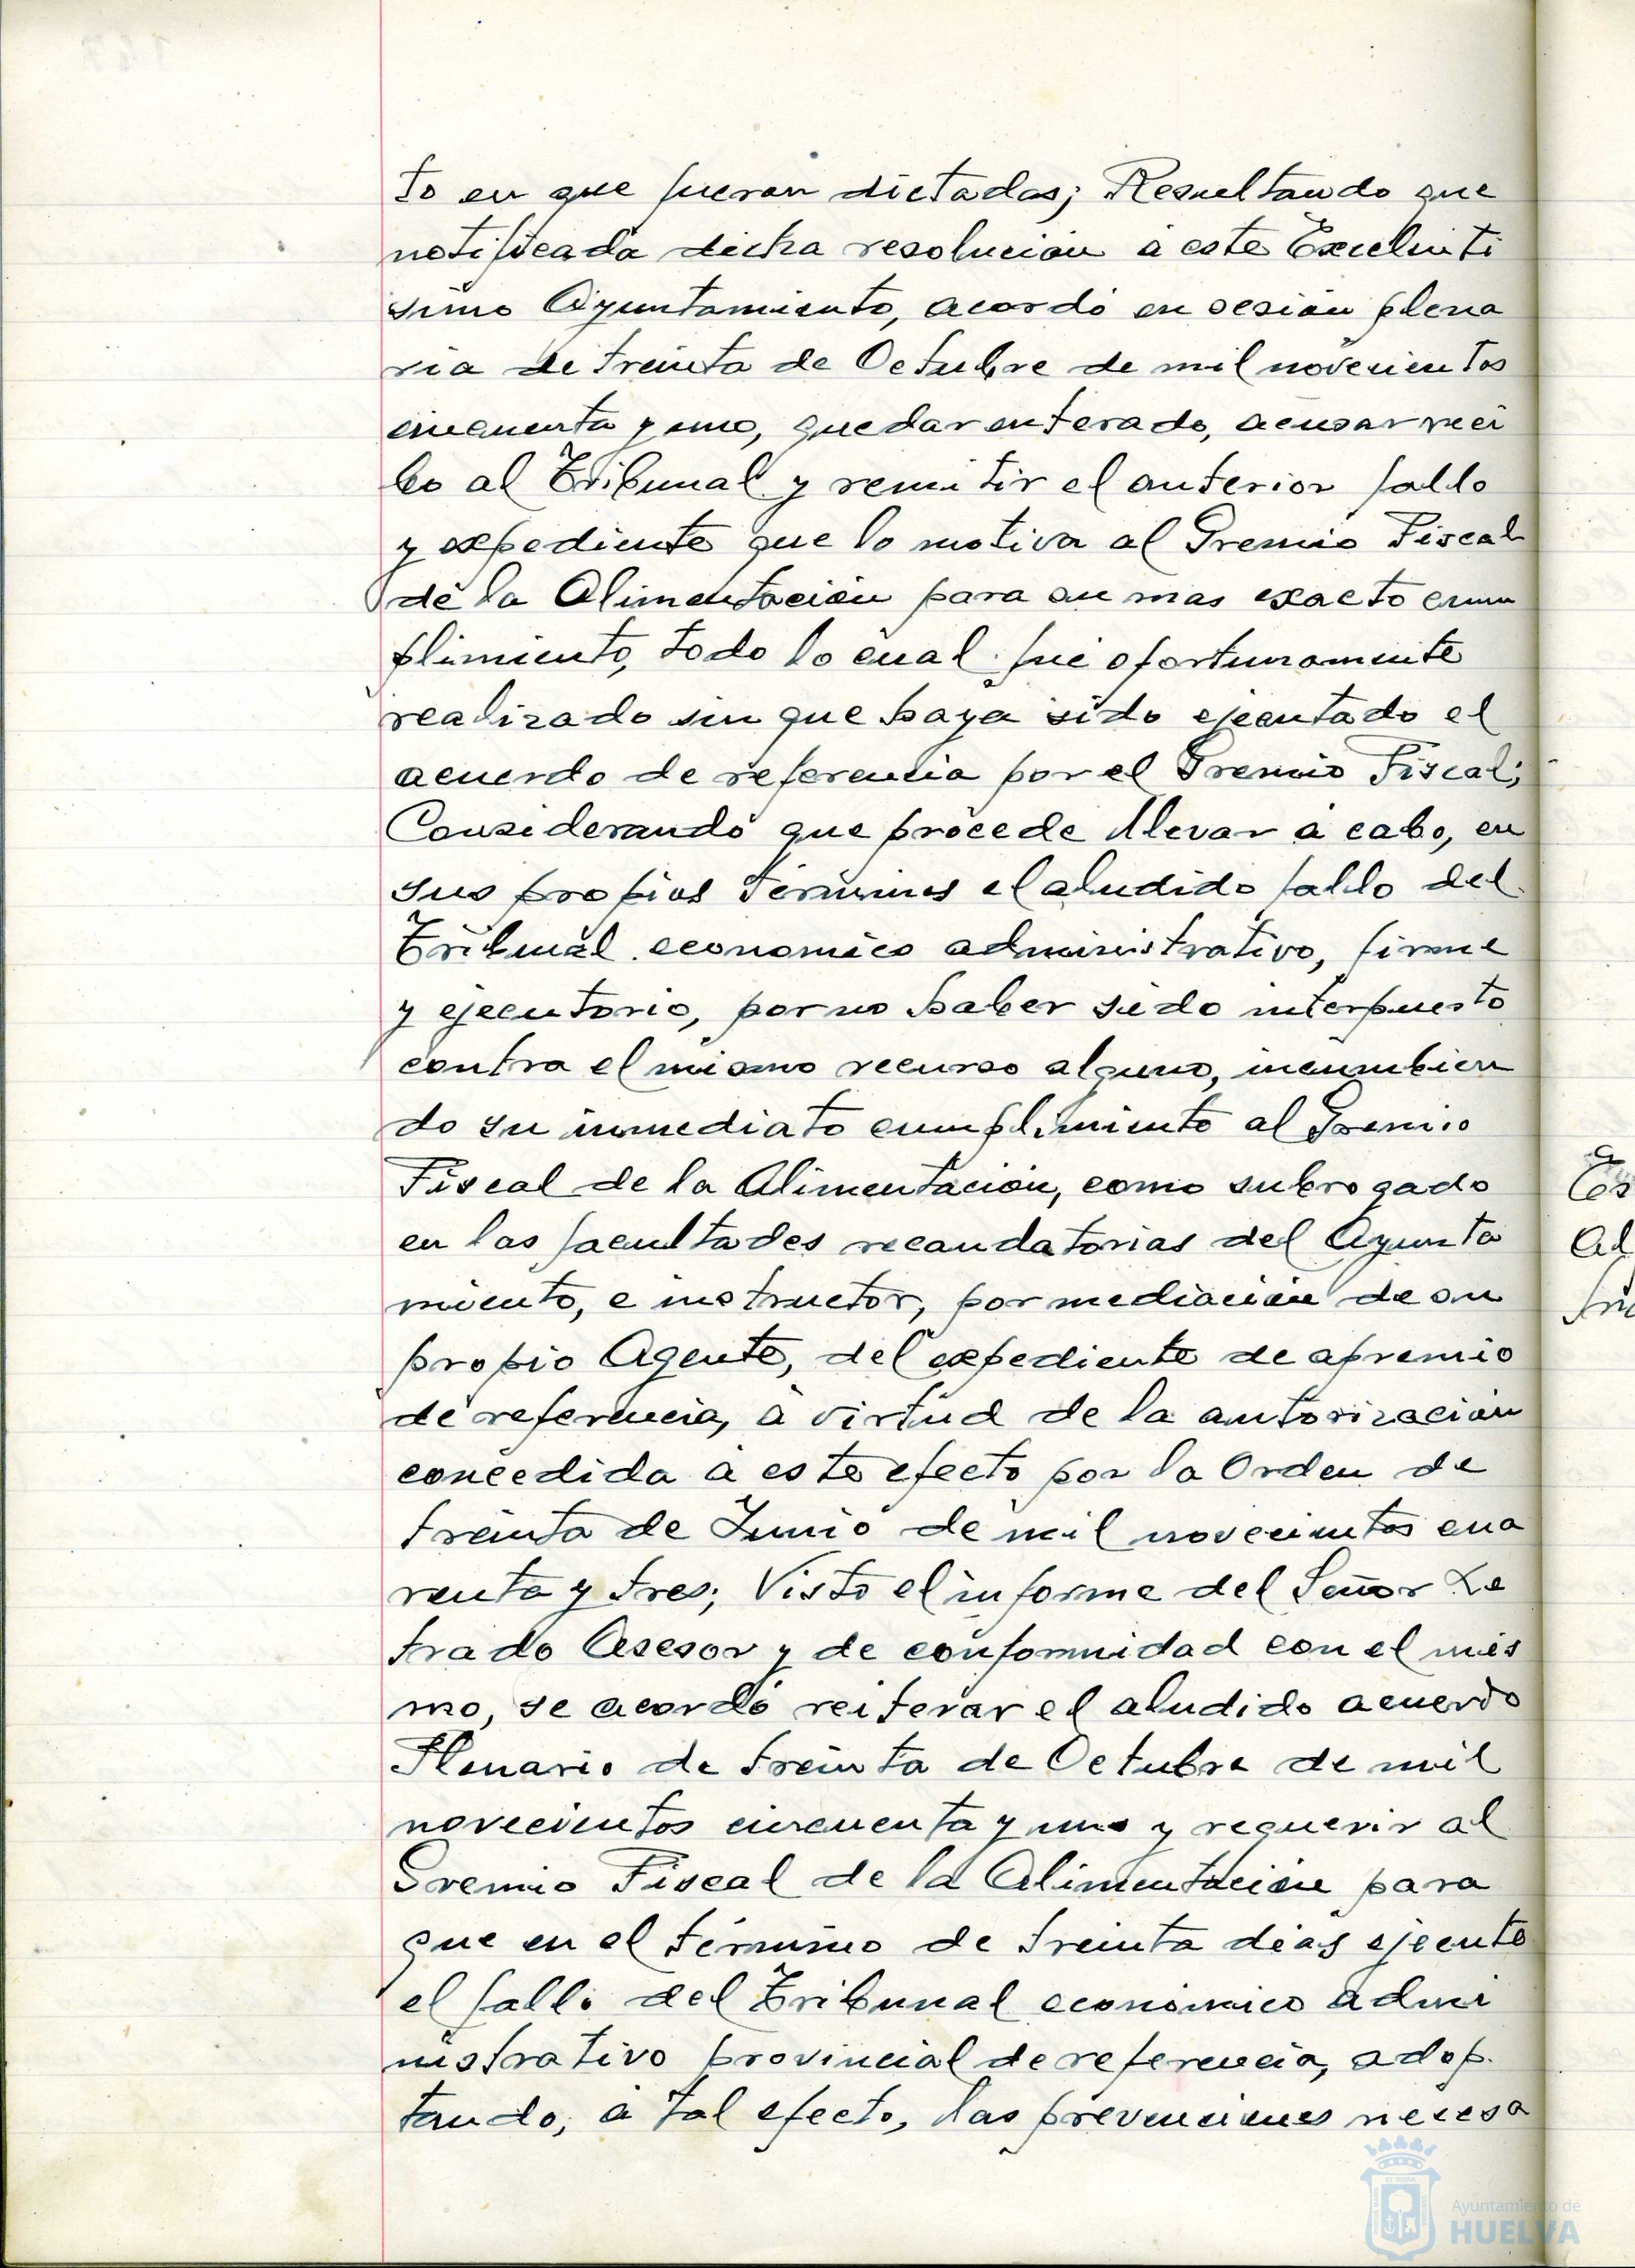 to en que fueron dictadas; Resultando que
notificada dicha resolución a este Excelentí
simo Ayuntamiento, acordó en sesión plena
ria de treinta de Octubre de mil novecientos
cincuenta y uno, quedar enterado, acusar reci
bo al Tribunal y remitir el anterior fallo
y expediente que lo motiva al Gremio Fiscal
de la Alimentación para su mas exacto cum
plimiento, todo lo cual fué oportunamente
realizado sin que haya sido ejecutado el
acuerdo de referencia por el Gremio Fiscal;
Considerando que procede llevar a cabo, en
sus propios términos el aludido fallo del
Tribunal economico administrativo, firme
y ejecutorio, por no haber sido interpuesto
contra el mismo recurso alguno, incumbien
do su inmediato cumplimiento al Gremio
Fiscal de la Alimentación, como subrogado
en las facultades recaudatorias del Ayunta
miento, e instructor, por mediación de su
propio Agente, del expediente de apremio
de referencia, a virtud de la autorización
concedida a este efecto por la Orden de
treinta de Junio de mil novecientos cua
renta y tres; Visto el informe del Señor Le
trado Asesor y de conformidad con el mis
mo, se acordó reiterar el aludido acuerdo
Plenario de treinta de Octubre de mil
novecientos cincuenta y uno y requerir al
Gremio Fiscal de la Alimentación para
que en el término de treinta dias ejecute
el fallo del Tribunal económico admi
nistrativo provincial de referencia, adop.
tando, a tal efecto, las prevenciones necesa
Ayuntamiento de
HUELVA